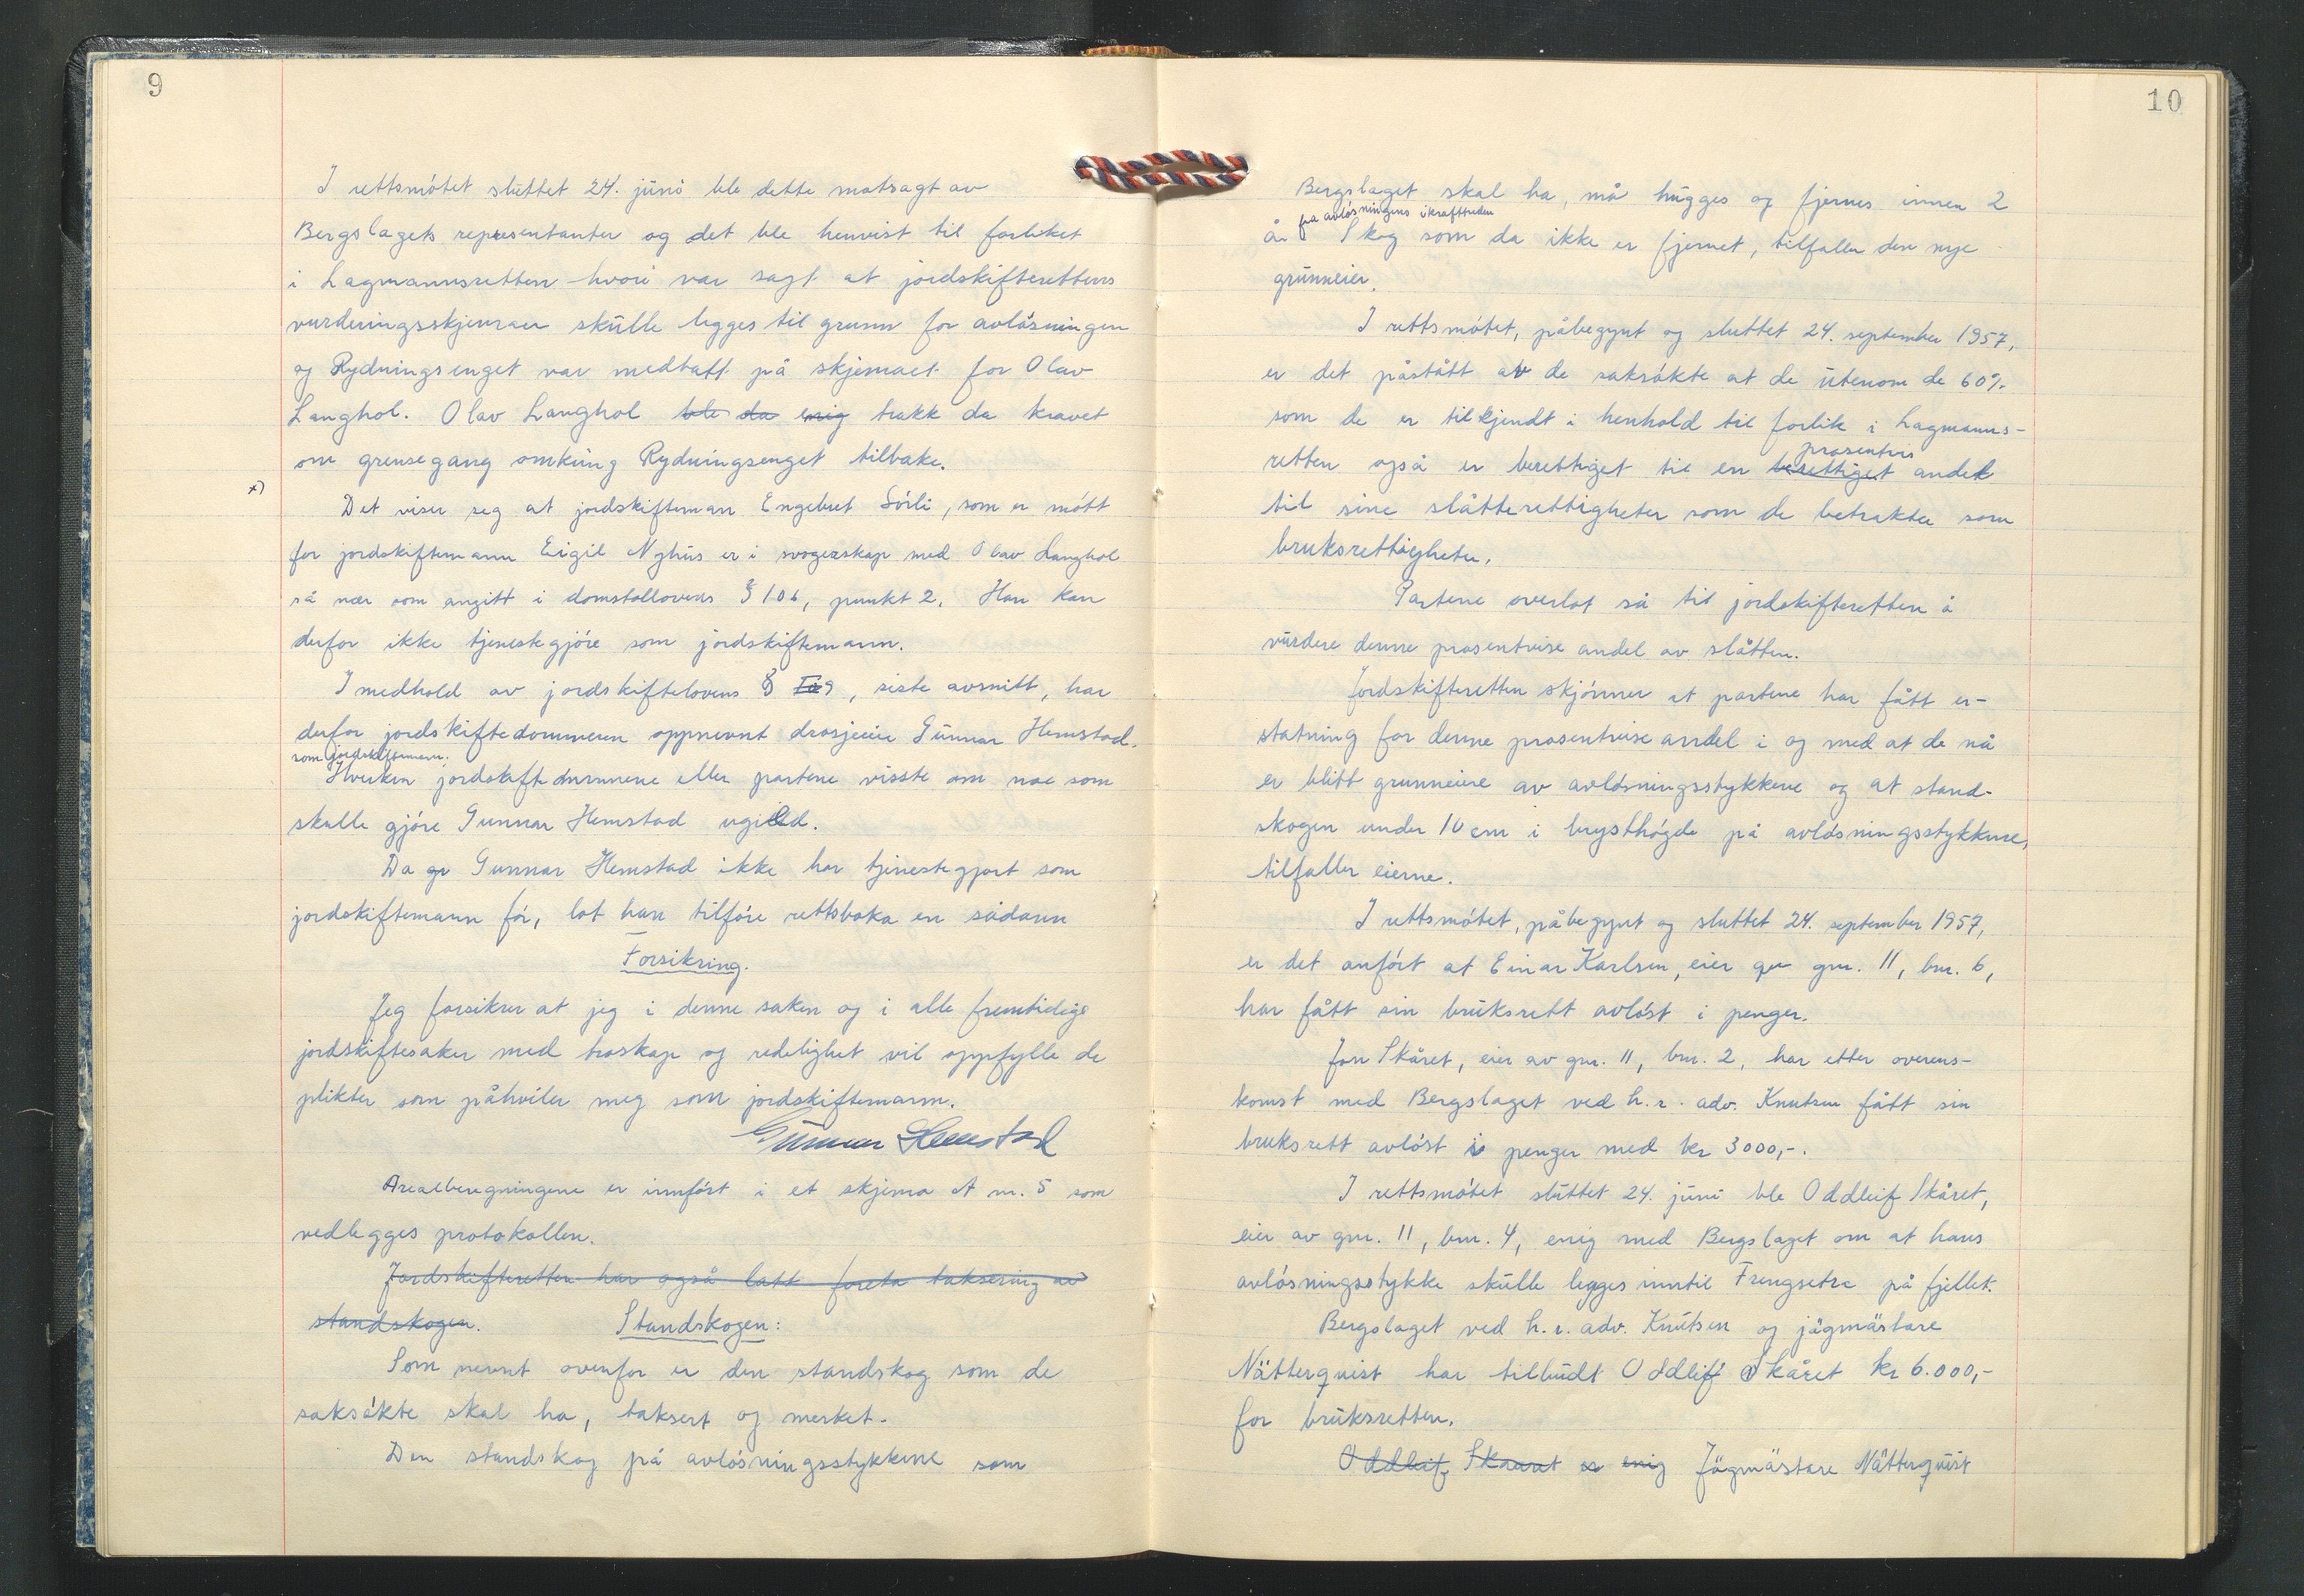 9
I rettsmötet sluttet 24. juni ble dette motsagt av
Bergslagets representanter og det ble henvist til forliket
i Lagmannsretten hvori var sagt at jordskifterettens
vurderingsskjemaer skulle legges til grunn for avlösningen
og Rydningsenget var medtatt på skjemaet for Olav
Langhol. Olav Langhol ble da enig trakk da kravet
om grensegang omkring Rydningsenget tilbake.
x) Det viser seg at jordskiftemann Engebret Sörli, som er mött
for jordskiftemann Eigil Nyhus er i svogerskap med Olav Langhol
så nær som angitt i domstollovens § 106, punkt 2. Han kan
derfor ikke tjenestegjöre som jordskiftemann.
I medhold av jordskiftelovens § 9, siste avsnitt, har
derfor jordskiftedommeren oppnevnt drosjeeier Gunnar Hemstad.
som jordskiftemann.
Hverken jordskiftedommerne eller partene visste om noe som
skulle gjöre Gunnar Hemstad ugild.
Da Gunnar Hemstad ikke har tjenestegjort som
jordskiftemann för, lot han tilföre rettsboka en sådann
Forsikring.
Jeg forsikrer at jeg i denne saken og i alle fremtidige
jordskiftesaker med troskap og redelighet vil oppfylle de
plikter som påhviler meg som jordskiftemann.
Gunnar Hemstad
Arealberegningene er innfört i et skjema A nr. 5 som
vedlegges protokollen.
Jordskifteretten har også latt foreta taksering av
standskogen. Standskogen:
Som nevnt ovenfor er den standskog som de
saksökte skal ha, taksert og merket.
Den standskog på avlösningsstykkene som
10
Bergslaget skal ha, må hugges og fjernes innen 2
fra avlösningens ikrafttreden
år Skog som da ikke er fjernet, tilfaller den nye
grunneier.
I rettsmötet, påbegynt og sluttet 24. september 1957,
er det påstått av de saksökte at de utenom de 60%
som de er tilkjendt i henhold til forlik i Lagmanns-
prosentvis
retten også er berettiget til en berettiget andel
til sine slåtterettigheter som de betrakter som
bruksrettigheter.
Partene overlot så til jordskifteretten å
vurdere denne prosentvise andel av slåtten.
Jordskifteretten skjönner at partene har fått er-
statning for denne prosentvise andel i og med at de nå
er blitt grunneiere av avlösningsstykkene og at stand-
skogen under 10 cm i brysthögde på avlösningsstykkene,
tilfaller eierne.
I rettsmötet, påbegynt og sluttet 24. september 1957,
er det anfört at Einar Karlsen, eier av gnr. 11, bnr. 6,
har fått sin bruksrett avlöst i penger.
Jon Skåret, eier av gnr. 11, bnr. 2, har etter overens-
komst med Bergslaget ved h.r. adv. Knutsen fått sin
bruksrett avlöst i penger med kr 3000,-.
I rettsmötet sluttet 24. juni ble Oddleif Skåret,
eier av gnr. 11, bnr. 4, enig med Bergslaget om at hans
avlösningsstykke skulle legges inntil Frengsetra på fjellet.
Bergslaget ved h.r. adv. Knutsen og jägmästare
Nätterqvist har tilbudt Oddleif Skåret kr 6.000,-
for bruksretten.
Oddleif Skaaret er enig Jägmästare Nätterqvist